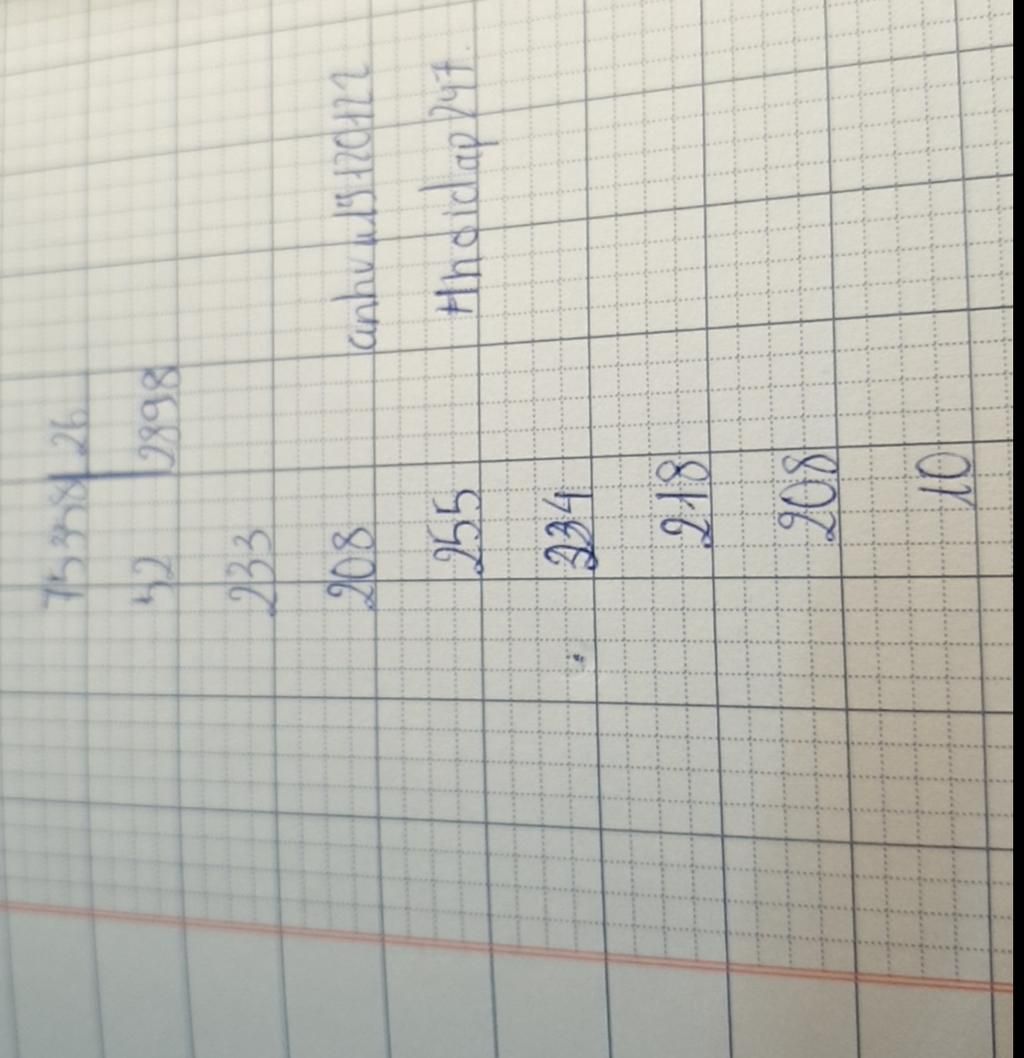 75358 26
52 2898
233
208
anhvu19120122
255
#hoidap247.
234
218
208
10